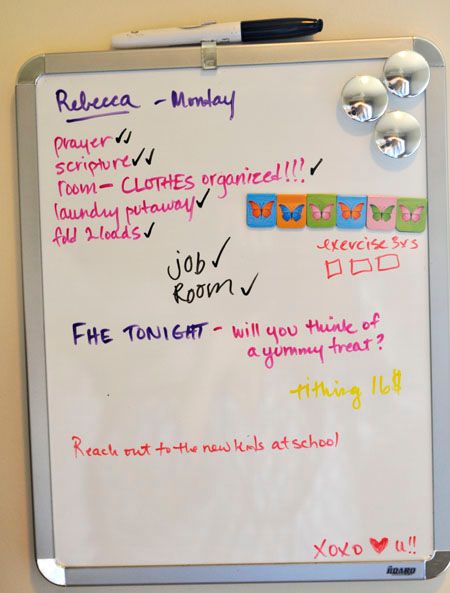 Rebecca - Monday
prayer ✓✓
scripture ✓✓
room - CLOTHES organized!!! ✓
laundry putaway ✓
fold 2 loads ✓
exercise 3xs
JOB ✓
ROOM ✓
FHE TONIGHT - will you think of
a yummy treat?
tithing 16$
Reach out to the new kids at school
XOXO ♥ u!!
THE BOARD